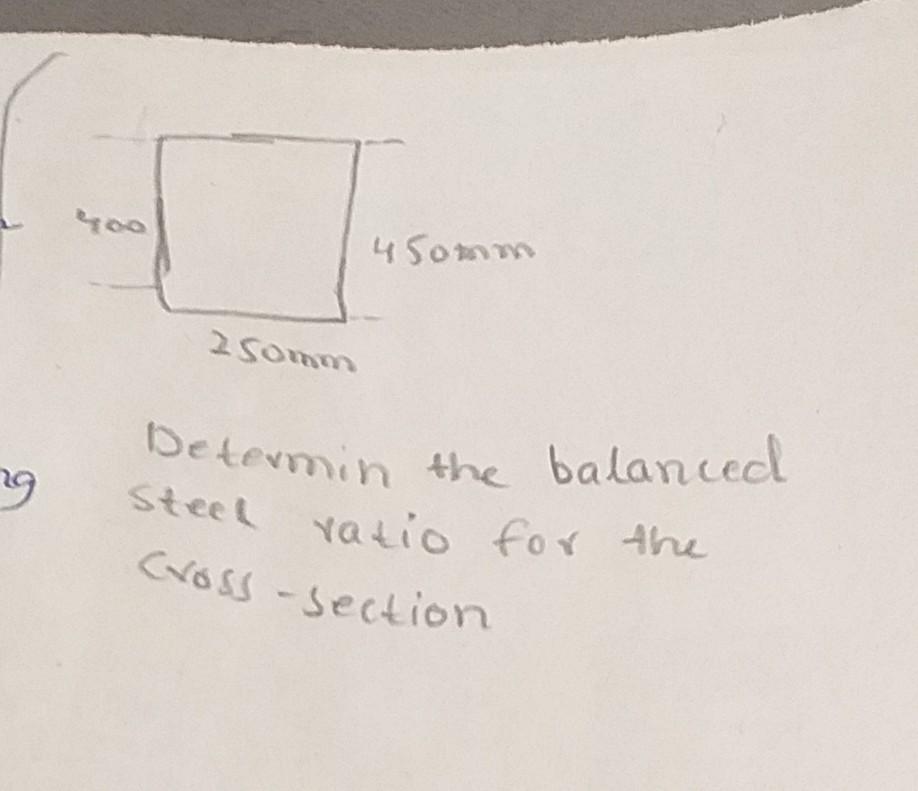 400
450mm
250mm
Determin the balanced
ng
steel ratio for the
cross-section